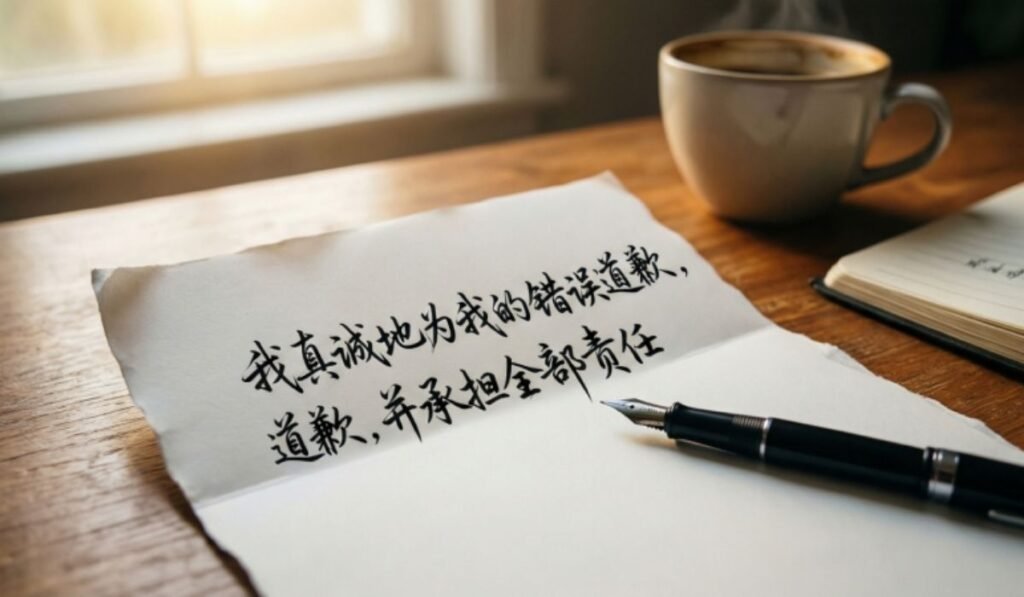 我真诚地为我的错误道歉，
道歉，并承担全部责任